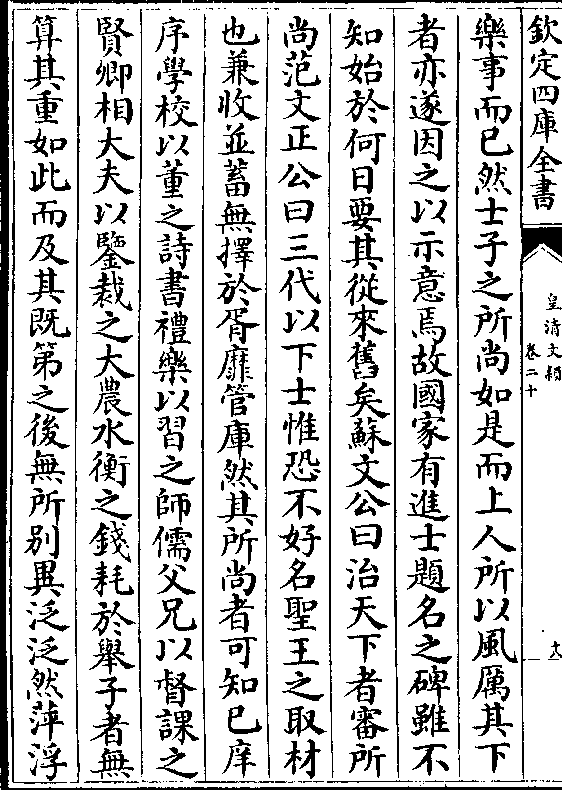 欽定四庫全書
皇清文穎
卷二十
樂事而已然士子之所尚如是而上人所以風厲其下
者亦遂因之以示意焉故國家有進士題名之碑雖不
知始於何日要其從來舊矣蘇文公曰治天下者審所
尚范文正公曰三代以下士惟恐不好名聖王之取材
也兼收並蓄無擇於胥靡管庫然其所尚者可知已庠
序學校以董之詩書禮樂以習之師儒父兄以督課之
賢卿相大夫以鑒裁之大農水衡之錢耗於舉子者無
算其重如此而及其既第之後無所別異泛泛然萍浮